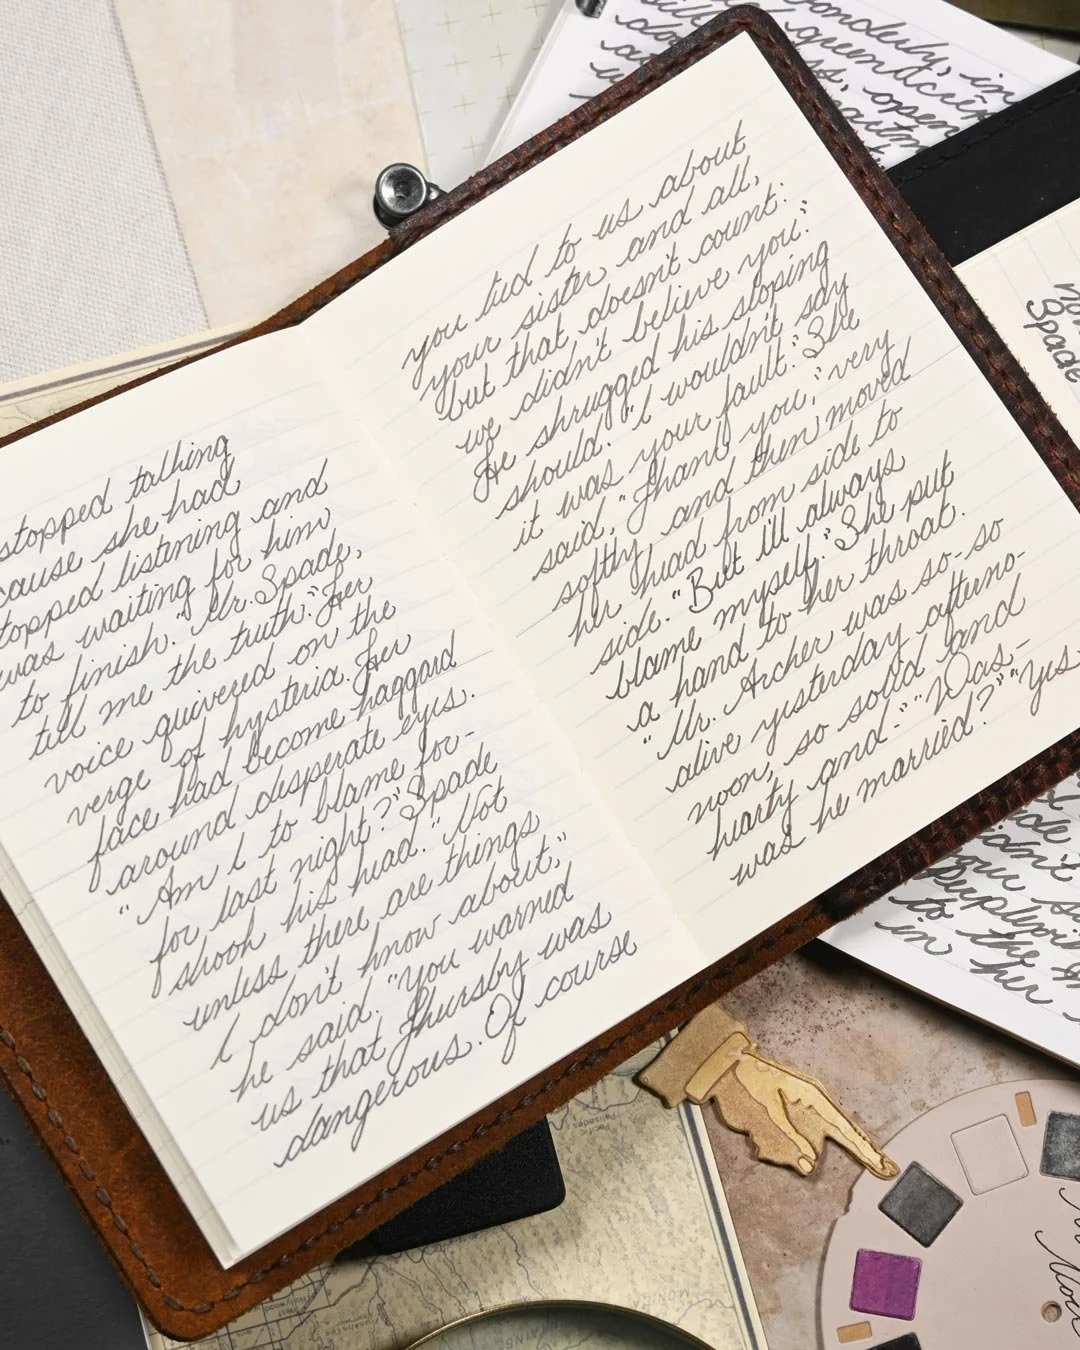 stopped talking
cause she had
topped listening and
was waiting for him
to finish. "Mr. Spade,
tell me the truth." Her
voice quivered on the
verge of hysteria. Her
face had become haggard
around desperate eyes.
"Am I to blame for-
for last night?" Spade
shook his head. "Not
unless there are things
I don't know about,"
he said. "You warned
us that Thursby was
dangerous. Of course
you lied to us about
your sister and all,
but that doesn't count:
we didn't believe you."
He shrugged his sloping
should. "I wouldn't say
it was your fault." She
said, "Thank you," very
softly and then moved
her head from side to
side. "But I'll always
blame myself." She put
a hand to her throat.
"Mr. Archer was so-so
alive yesterday afterno-
noon, so solid and
hearty and-" "Was-
was he married?" "Yes
onderly, in
green crê
open
Spade
didn't
your
perplexin
to the
in her
Palisades
Hollywood
MONICA